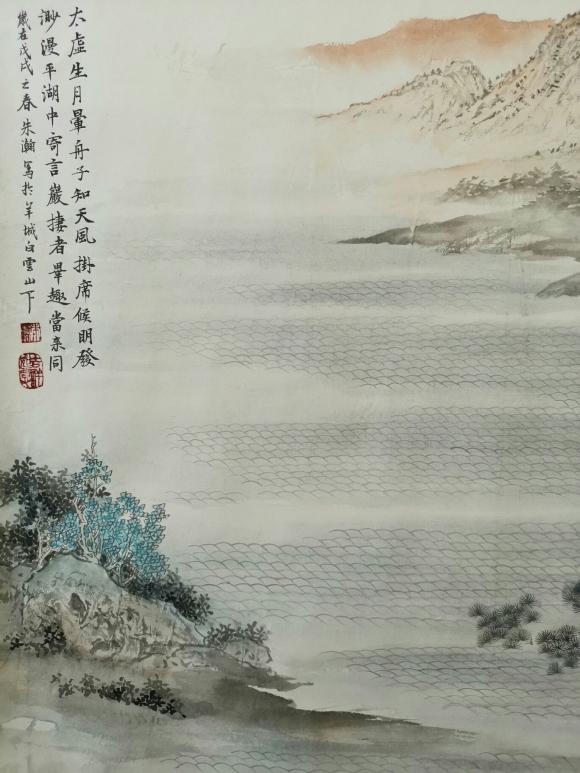 太虛生月暈舟子知天風掛席候明發
渺漫平湖中寄言巖捿者畢趣當来同
歲在戊戌之春朱瀚寫於羊城白雲山下